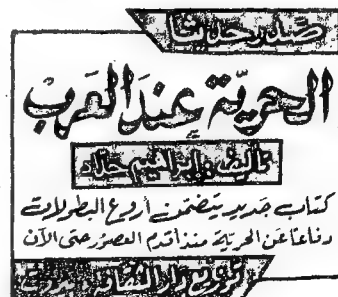 صدر حديثا
الحرية عند العرب
تأليف : ابراهيم حداد
كتاب جديد يتضمن أروع البطولات
دفاعا عن الحرية منذ أقدم العصور حتى الآن
دار الثقافة